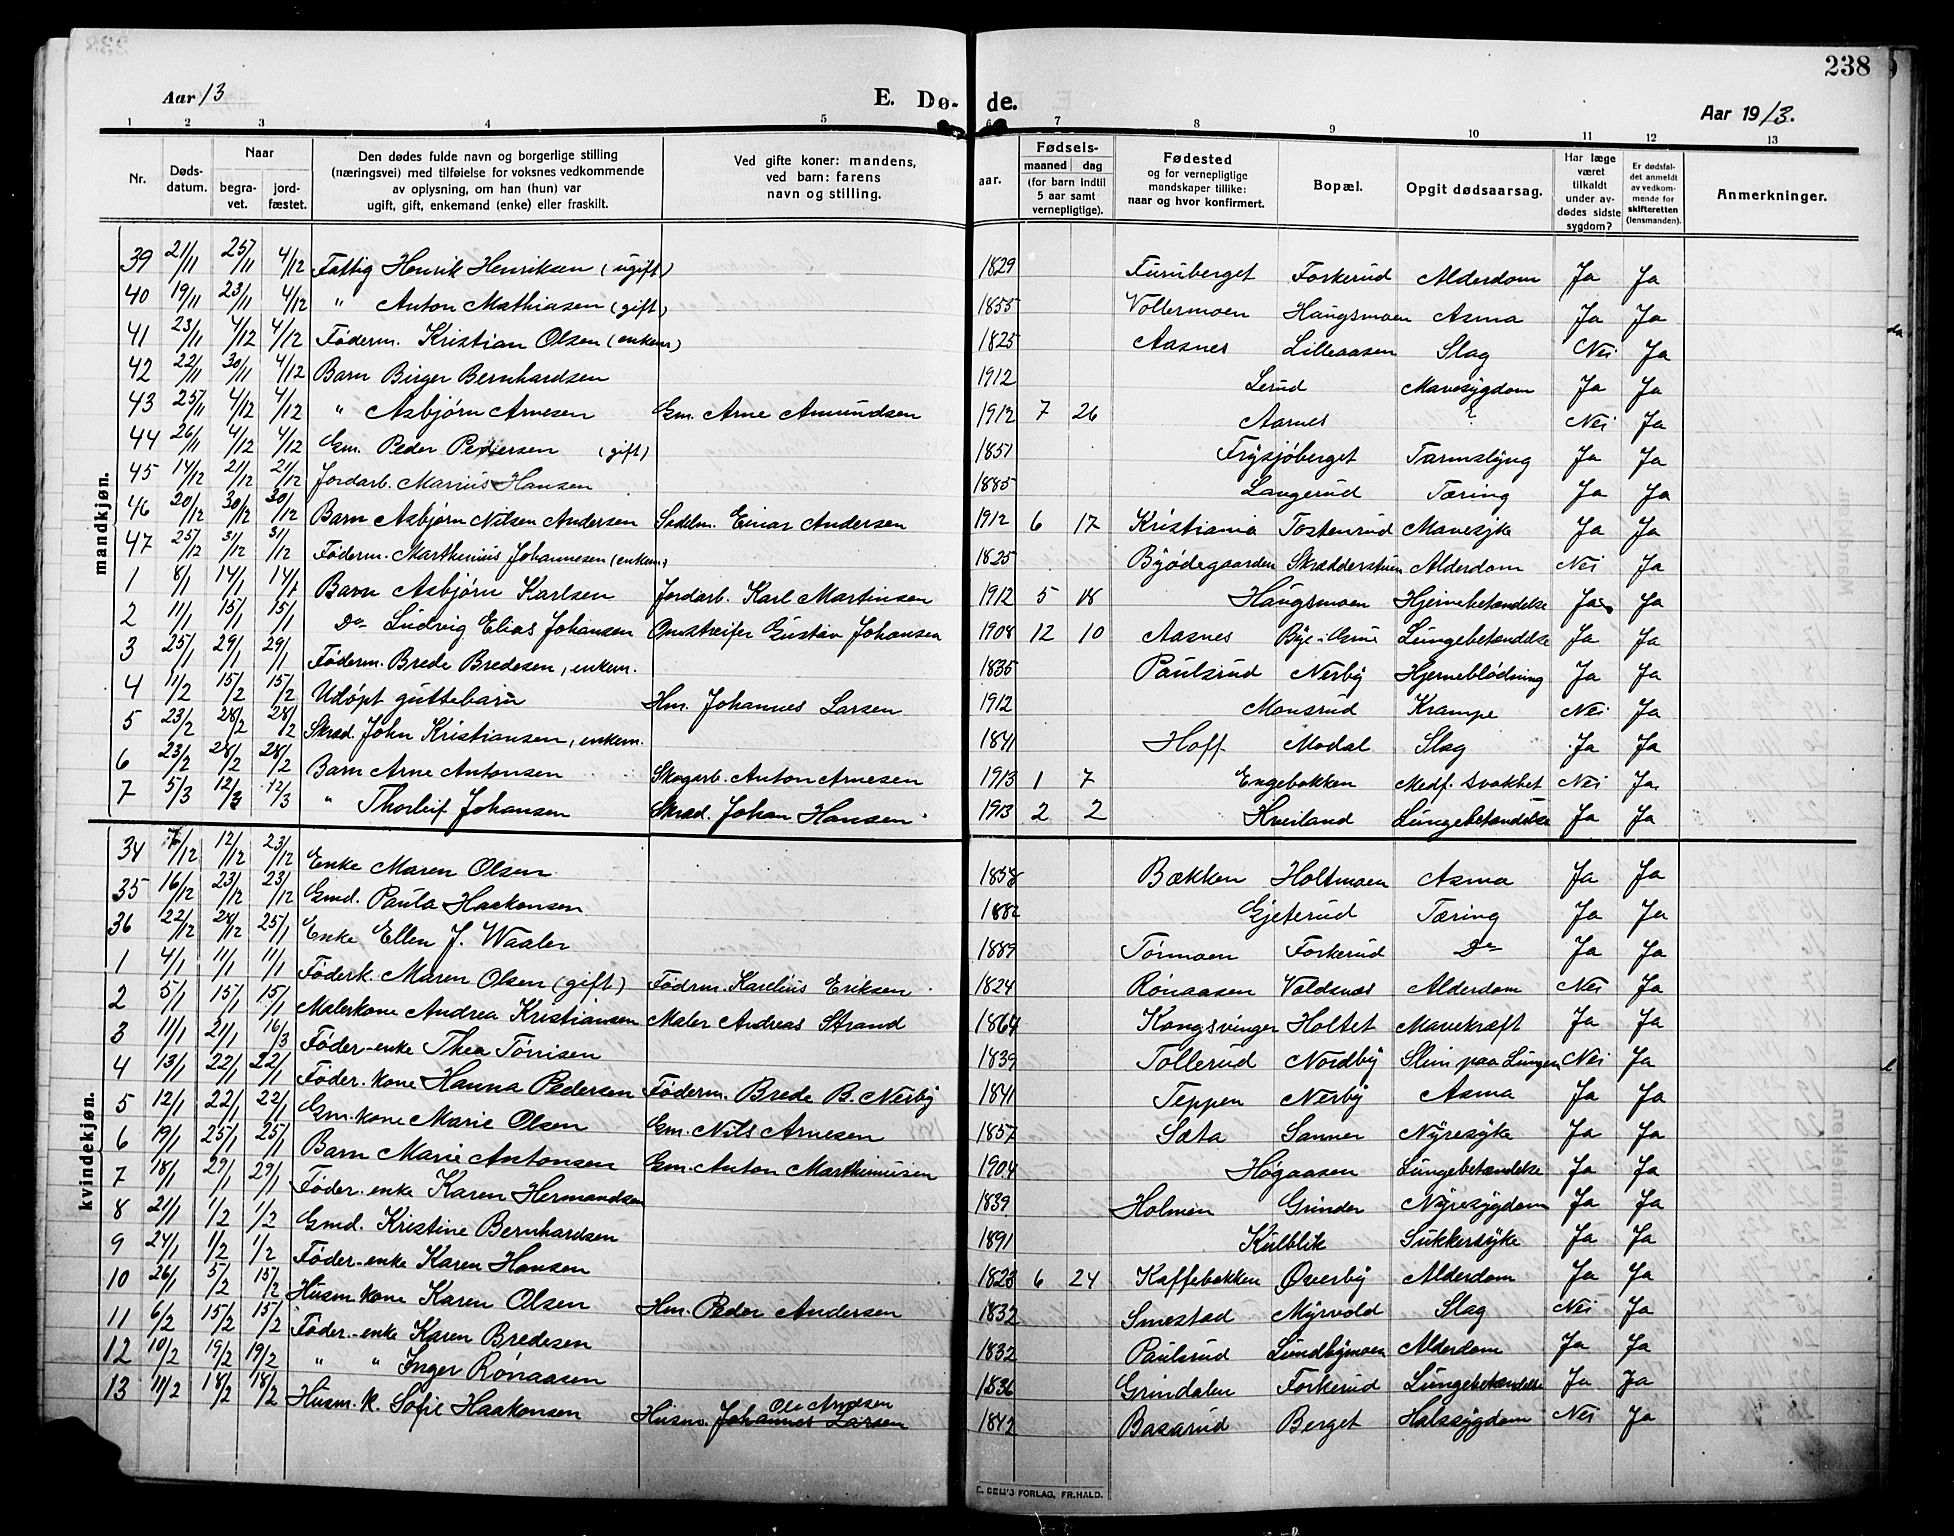 238
Aar 13
E. Dø- de.
Aar 1913.
1 2 3 4 5 6 7 8 9 10 11 12 13
Nr.
Døds-
datum.
Naar
begra-
vet.
jord-
fæstet.
Den dødes fulde navn og borgerlige stilling
(næringsvei) med tilføielse for voksnes vedkommende
av oplysning, om han (hun) var
ugift, gift, enkemand (enke) eller fraskilt.
Ved gifte koner: mandens,
ved barn: farens
navn og stilling.
aar.
Fødsels-
maaned dag
(for barn indtil
5 aar samt
vernepligtige).
Fødested
og for vernepligtige
mandskaper tillike:
naar og hvor konfirmert.
Bopæl.
Opgit dødsaarsag.
Har læge
været
tilkaldt
under av-
dødes sidste
sygdom?
Er dødsfal-
det anmeldt
av vedkom-
mende for
skifteretten
(lensmanden).
Anmerkninger.
mandkjøn.
39 21/11 25/11 4/12 Fattig Henrik Henriksen (ugift) 1829 Furuberget Forkerud Alderdom Ja Ja
40 19/11 23/11 4/12 " Anton Mathiasen (gift) 1855 Vollermoen Haugsmoen Asma Ja Ja
41 23/11 4/12 4/12 Føderm. Kristian Olsen (enkem) 1825 Aasnes Lilleaasen Slag Nei Ja
42 22/11 30/11 4/12 Barn Birger Bernhardsen 1912 Lerud Mavesygdom Ja Ja
43 25/11 4/12 4/12 " Asbjørn Arnesen Gm. Arne Amundsen 1912 7 26 Aarnes ? Nei Ja
44 26/11 4/12 4/12 Gm. Peder Pedersen (gift) 1851 Frysjøberget Tarmslyng Ja Ja
45 14/12 21/12 21/12 Jordarb. Marius Hansen 1885 Langerud Tæring Ja Ja
46 20/12 30/12 30/12 Barn Asbjørn Nilsen Andersen Sadelm. Einar Andersen 1912 6 17 Kristiania Tostenrud Mavesyke Ja Ja
47 25/12 31/12 31/12 Føderm. Marthinius Johannesen (enkem) 1825 Byødegaarden Skrædderstuen Alderdom Nei Ja
1 8/1 14/1 14/1 Barn Asbjørn Karlsen Jordarb. Karl Martinsen 1912 5 18 Haugsmoen Hjernebetændelse Ja Ja
2 11/1 15/1 15/1 Do Ludvig Elias Johansen Omstreifer Gustav Johansen 1908 12 10 Aasnes Bye i Lungebetændelse Ja Ja
3 25/1 29/1 29/1 Føderm. Brede Bredesen, enkem. 1835 Paulsrud Nerby Hjerneblødning Ja Ja
4 11/2 15/2 15/2 Udøpt guttebarn Hm. Johannes Larsen 1912 Monsrud Krampe Nei Ja
5 23/2 28/2 28/2 Skræd. John Kristiansen, enkem. 1841 Hoff Modal Slag Ja Ja
6 23/2 28/2 28/2 Barn Arne Antonsen Skogarb. Anton Arnesen 1913 1 7 Engebakken Medf. svakhet Nei Ja
7 5/3 12/3 12/3 " Thorleif Johansen Skræd. Johan Hansen 1913 2 2 Kveiland Lungebetændelse Ja Ja
kvindekjøn.
34 7/12 12/12 23/12 Enke Maren Olsen 1858 Bækken Holtmoen Asma Ja Ja
35 16/12 23/12 23/12 Gmd. Paula Haakonsen 1882 Gjeterud Tæring Ja Ja
36 22/12 28/12 25/1 Enke Ellen J. Waaler 1889 Tørmoen Forkerud Do Ja Ja
1 4/1 11/1 11/1 Føderk. Maren Olsen (gift) Fødrm. Karelius Eriksen 1824 Rønaasen Voldsnæs Alderdom Nei Ja
2 5/1 15/1 15/1 Malerkone Andrea Kristiansen Maler Andreas Strand 1864 Kongsvinger Holtet Mavekræft Ja Ja
3 11/1 21/1 16/3 Føder-enke Thea Tørrisen 1839 Tollerud Nordby Slim paa Lungen Nei Ja
4 13/1 22/1 22/1 Føder-kone Hanna Pedersen Føderm. Brede B. Nerby 1841 Teppen Nerby Asma Ja Ja
5 12/1 22/1 22/1 Gm. kone Marie Olsen Gm. Nils Arnesen 1857 Sæta Sanner Nyresyke Ja Ja
6 19/1 25/1 25/1 Barn Marie Antonsen Gm. Anton Marthinusen 1904 Høgaasen Lungebetændelse Ja Ja
7 18/1 29/1 29/1 Føder-enke Karen Hermandsen 1839 Holmen Grinder Nyresygdom Ja Ja
8 21/1 1/2 1/2 Gmd. Kristine Bernhardsen 1891 Kulblik Sukkersyke Ja Ja
9 24/1 1/2 1/2 Føder-enke Karen Hansen 1823 6 24 Kaffebakken Overby Alderdom Ja Ja
10 26/1 5/2 15/2 Husm kone Karen Olsen Hm. Peder Andersen 1832 Smestad Myrvold Slag Nei Ja
11 6/2 15/2 15/2 Føder-enke Karen Bredesen 1832 Paulsrud Lundbymoen Alderdom Ja Ja
12 10/2 19/2 19/2 " " Inger Rønaasen 1836 Grindalen Forkerud Lungebetændelse Ja Ja
13 11/2 18/2 18/2 Husm. k. Sofie Haakonsen Husm. Johannes Larsen Ole Arnesen 1842 Basarud Berget Halssygdom Nei Ja
FORLAG, FR.HALD.